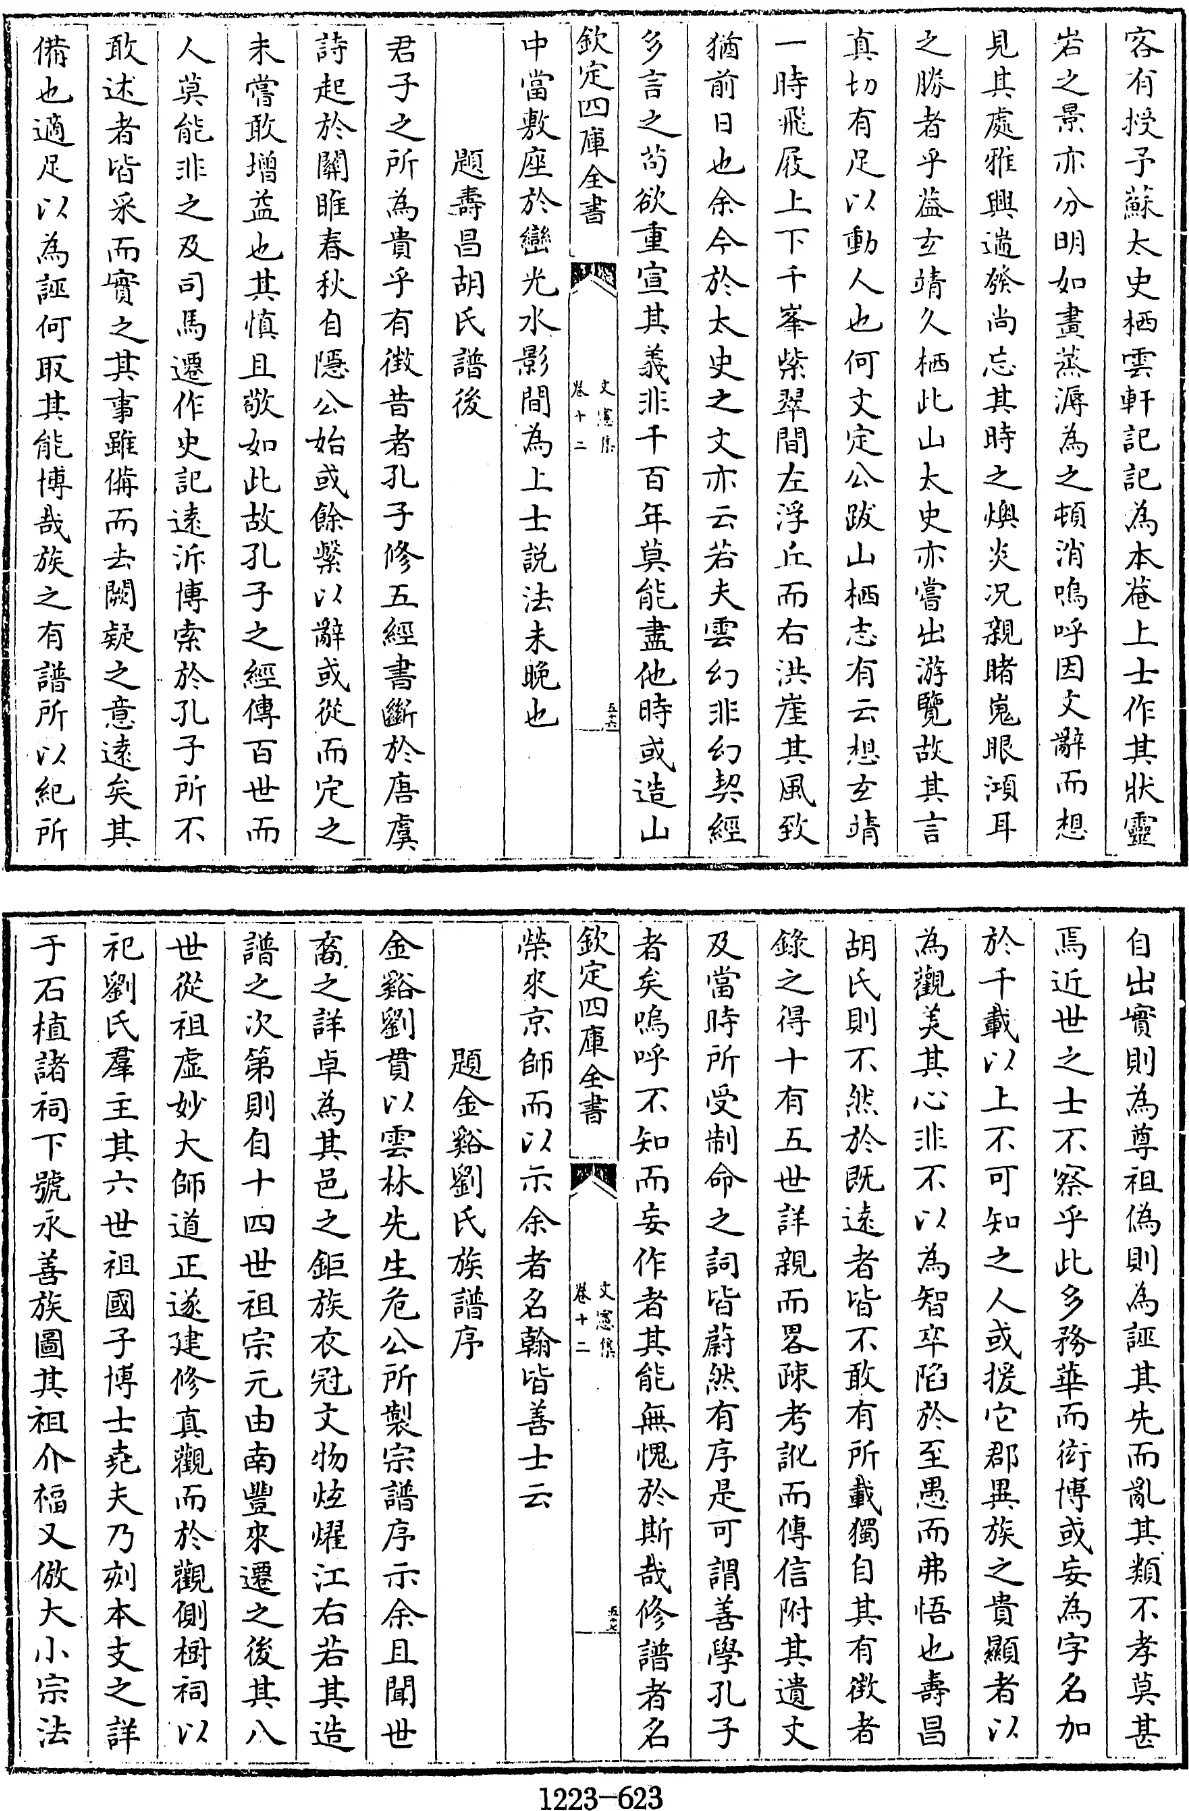 客有授予蘇太史栖雲軒記記為本菴上士作其狀靈
岩之景亦分明如畫蒸溽為之頓消嗚呼因文辭而想
見其處雅興遄發尚忘其時之燠炎况親睹嵬眼澒耳
之勝者乎葢玄靖久栖此山太史亦嘗出游覽故其言
真切有足以動人也何文定公跋山栖志有云想玄靖
一時飛屐上下千峯紫翠間左浮丘而右洪崖其風致
猶前日也余今於太史之文亦云若夫雲幻非幻契經
多言之苟欲重宣其義非千百年莫能盡他時或造山
欽定四庫全書
文憲集
卷十二
五十六
中當敷座於巒光水影間為上士説法未晚也
題壽昌胡氏譜後
君子之所為貴乎有徴昔者孔子修五經書斷於唐虞
詩起於關雎春秋自隱公始或餘縏以辭或從而定之
未嘗敢增益也其慎且敬如此故孔子之經傳百世而
人莫能非之及司馬遷作史記遠泝博索於孔子所不
敢述者皆采而實之其事雖備而去闕疑之意遠矣其
備也適足以為誣何取其能博哉族之有譜所以紀所
自出實則為尊祖偽則為誣其先而亂其類不孝莫甚
焉近世之士不察乎此多務華而衒博或妄為字名加
於千載以上不可知之人或援它郡異族之貴顯者以
為觀美其心非不以為智卒陷於至愚而弗悟也壽昌
胡氏則不然於既遠者皆不敢有所載獨自其有徴者
錄之得十有五世詳親而畧疎考訛而傳信附其遺文
及當時所受制命之詞皆蔚然有序是可謂善學孔子
者矣嗚呼不知而妄作者其能無愧於斯哉修譜者名
欽定四庫全書
文憲集
卷十二
五十七
榮來京師而以示余者名翰皆善士云
題金谿劉氏族譜序
金谿劉貫以雲林先生危公所製宗譜序示余且聞世
裔之詳卓為其邑之鉅族衣冠文物炫燿江右若其造
譜之次第則自十四世祖宗元由南豐來遷之後其八
世從祖虛妙大師道正遂建修真觀而於觀側樹祠以
祀劉氏羣主其六世祖國子博士堯夫乃刻本支之詳
于石植諸祠下號永善族圖其祖介福又倣大小宗法
1223-623